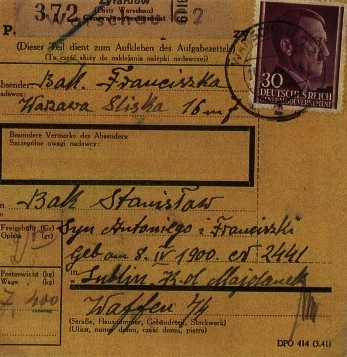 Żyrardów
372
(Distr. Warschau)
Generalgouvernement
P.
(Dieser Teil dient zum Aufkleben des Aufgabezettels)
(Ta część służy do naklejania nalepki nadawczej)
30
DEUTSCHES REICH
GENERALGOUVERNEMENT
Absender:
nadawca:
Bąk Franciszka
Warszawa Śliska 16 m 7
Besondere Vermerke des Absenders
Szczególne uwagi nadawcy:
Bąk Stanisław
Freigebühr
Opłata
Syn Antoniego i Franciszki
Geb am 8. IV 1900. cN 2441
Postgewicht (kg)
Waga
in
w
Lublin K.d. Majdanek
7 400
Waffen
(Straße, Hausnummer, Gebäudeteil, Stockwerk)
(Ulica, numer domu, część domu, piętro)
DPO 414 (3.41)